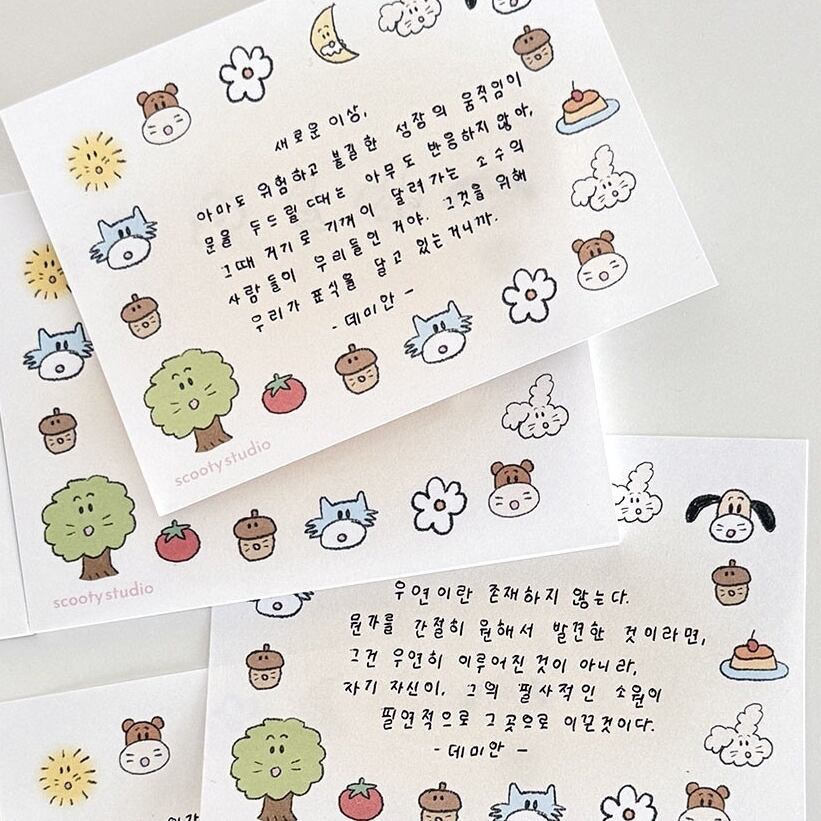 새로운 이상,
아마도 위험하고 불길한 성장의 움직임이
문을 두드릴 때는 아무도 반응하지 않아,
그때 거기로 기꺼이 달려가는 소수의
사람들이 우리들인 거야. 그것을 위해
우리가 표식을 달고 있는거니까.
- 데미안 -
scooty studio
scooty studio
우연이란 존재하지 않는다.
뭔가를 간절히 원해서 발견한 것이라면,
그건 우연히 이루어진 것이 아니라,
자기 자신이, 그의 필사적인 소원이
필연적으로 그곳으로 이끈것이다.
- 데미안 -